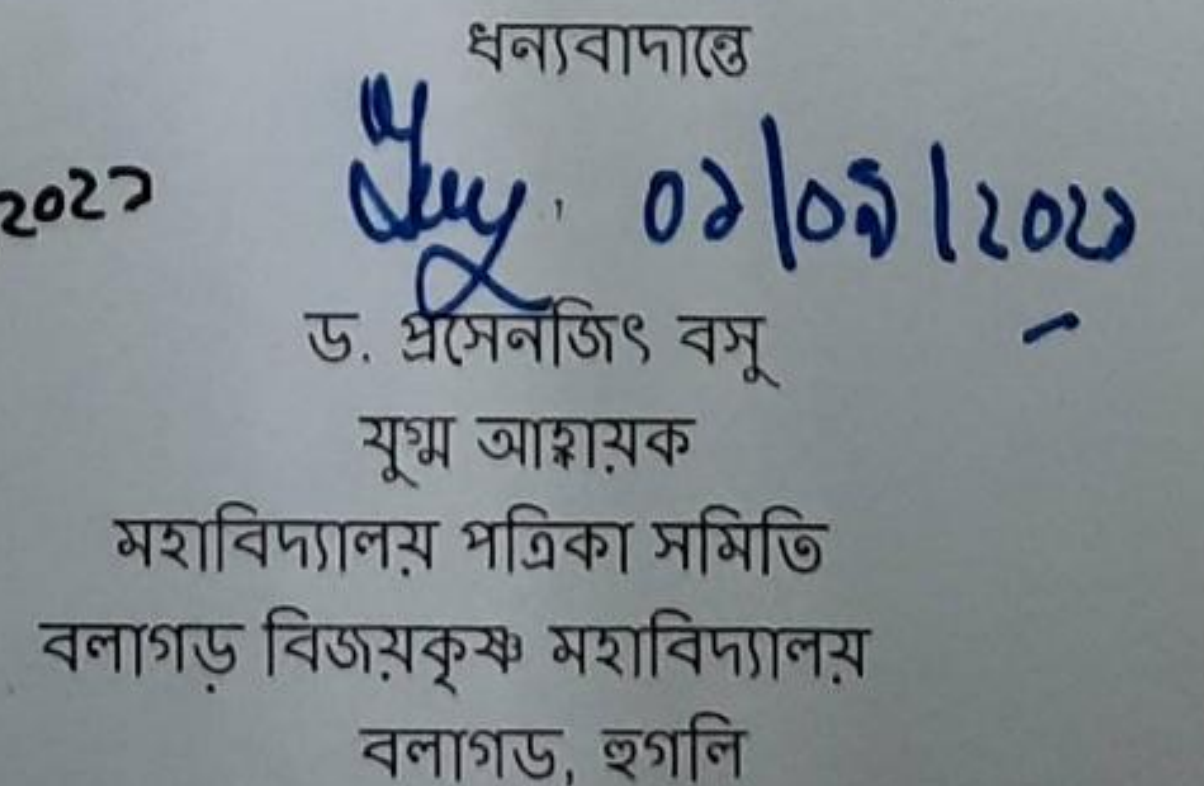 ধন্যবাদান্তে
২০২১
০১/০৯/২০২১
ড. প্রসেনজিৎ বসু
যুগ্ম আহ্বায়ক
মহাবিদ্যালয় পত্রিকা সমিতি
বলাগড় বিজয়কৃষ্ণ মহাবিদ্যালয়
বলাগড়, হুগলি